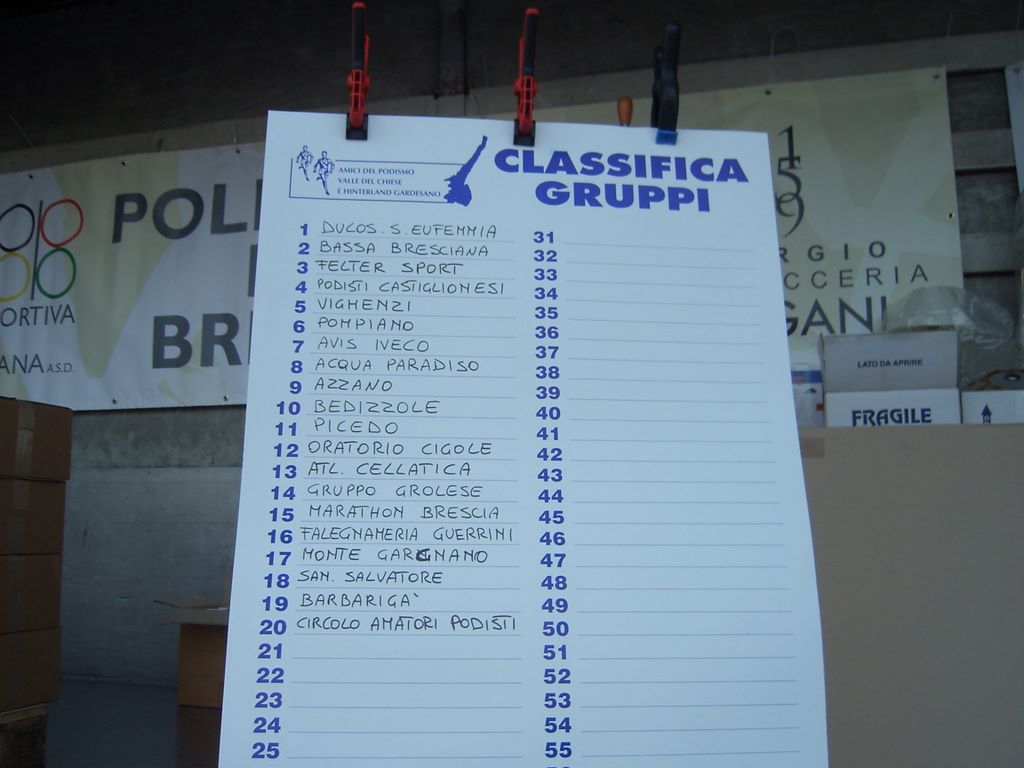 AMICI DEL PODISMO
VALLE DEL CHIESE
E HINTERLAND GARDESANO
CLASSIFICA
GRUPPI
1 DUCOS. S. EUFEMMIA
2 BASSA BRESCIANA
3 FELTER SPORT
4 PODISTI CASTIGLIONESI
5 VIGHENZI
6 POMPIANO
7 AVIS IVECO
8 ACQUA PARADISO
9 AZZANO
10 BEDIZZOLE
11 PICEDO
12 ORATORIO CIGOLE
13 ATL. CELLATICA
14 GRUPPO GROLESE
15 MARATHON BRESCIA
16 FALEGNAMERIA GUERRINI
17 MONTE GARGNANO
18 SAN. SALVATORE
19 BARBARIGA`
20 CIRCOLO AMATORI PODISTI
21
22
23
24
25
31
32
33
34
35
36
37
38
39
40
41
42
43
44
45
46
47
48
49
50
51
52
53
54
55
POLI
BRE
ORTIVA
ANA A.S.D.
159
RGIO
CCERIA
GANI
LATO DA APRIRE
FRAGILE